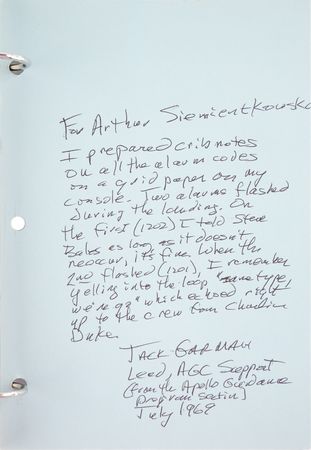 For Arthur Siemientkowski
I prepared crib notes
on all the alarm codes
on a grid paper on my
console. Two alarms flashed
during the landing. On
the first (1202) I told Steve
Bales as long as it doesn't
reoccur, it's fine. When the
2nd flashed (1201), I remember
yelling into the loop "same type
we're go" which echoed right
up to the crew from Charlie
Duke.
JACK GARMAN
Lead, AGC Support
(from the Apollo Guidance
Program Section)
July 1969